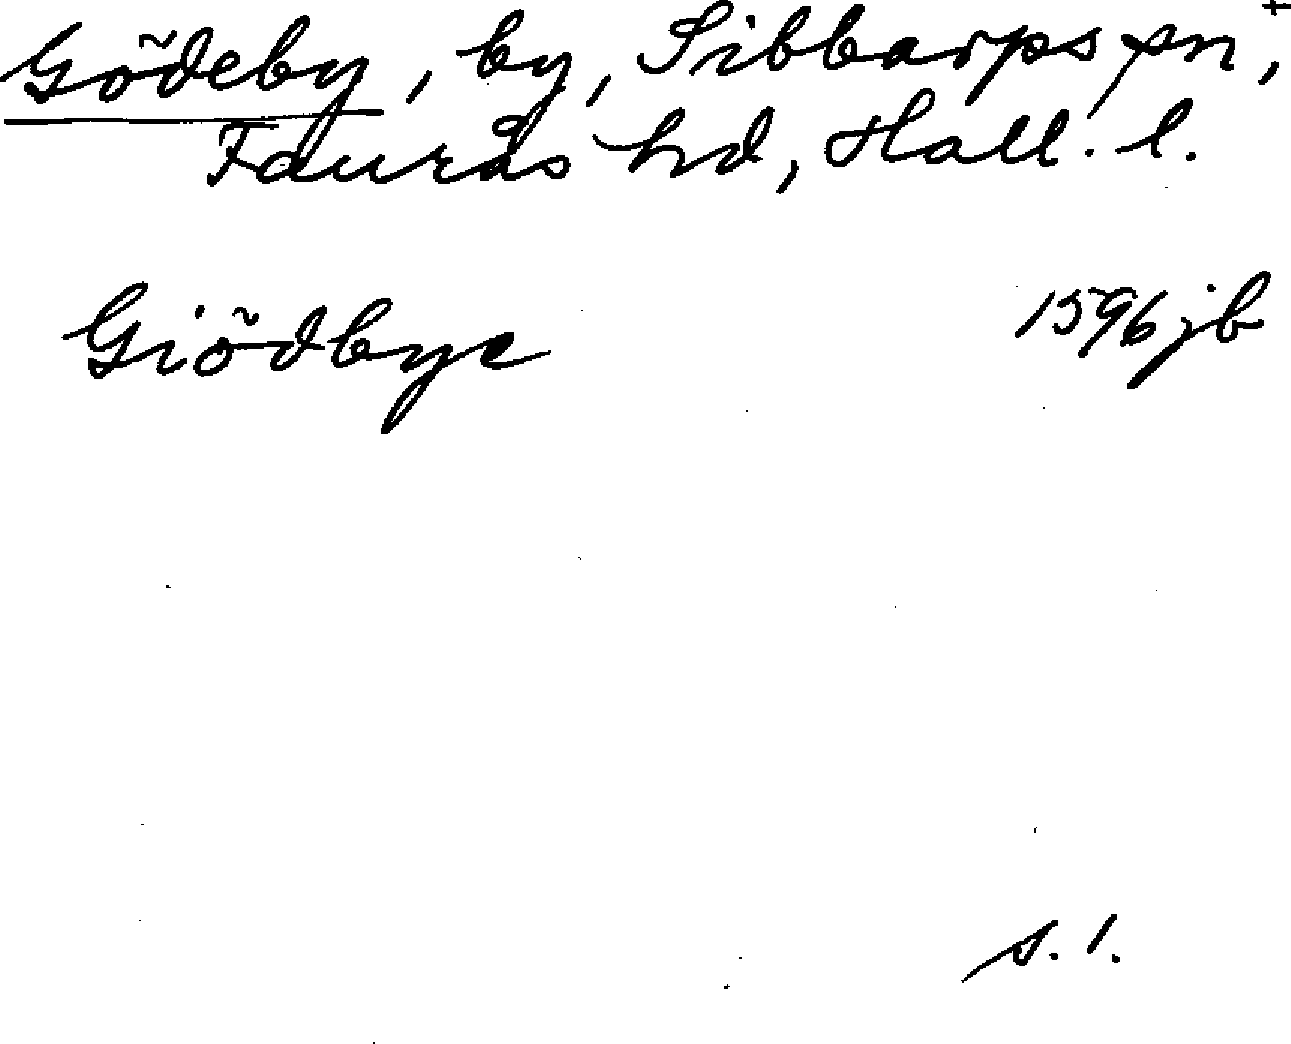 Gödeby, by, Sibbarps sn, +
Faurås hd, Hall. l.
Giödbye 1596 jb
s. 1.